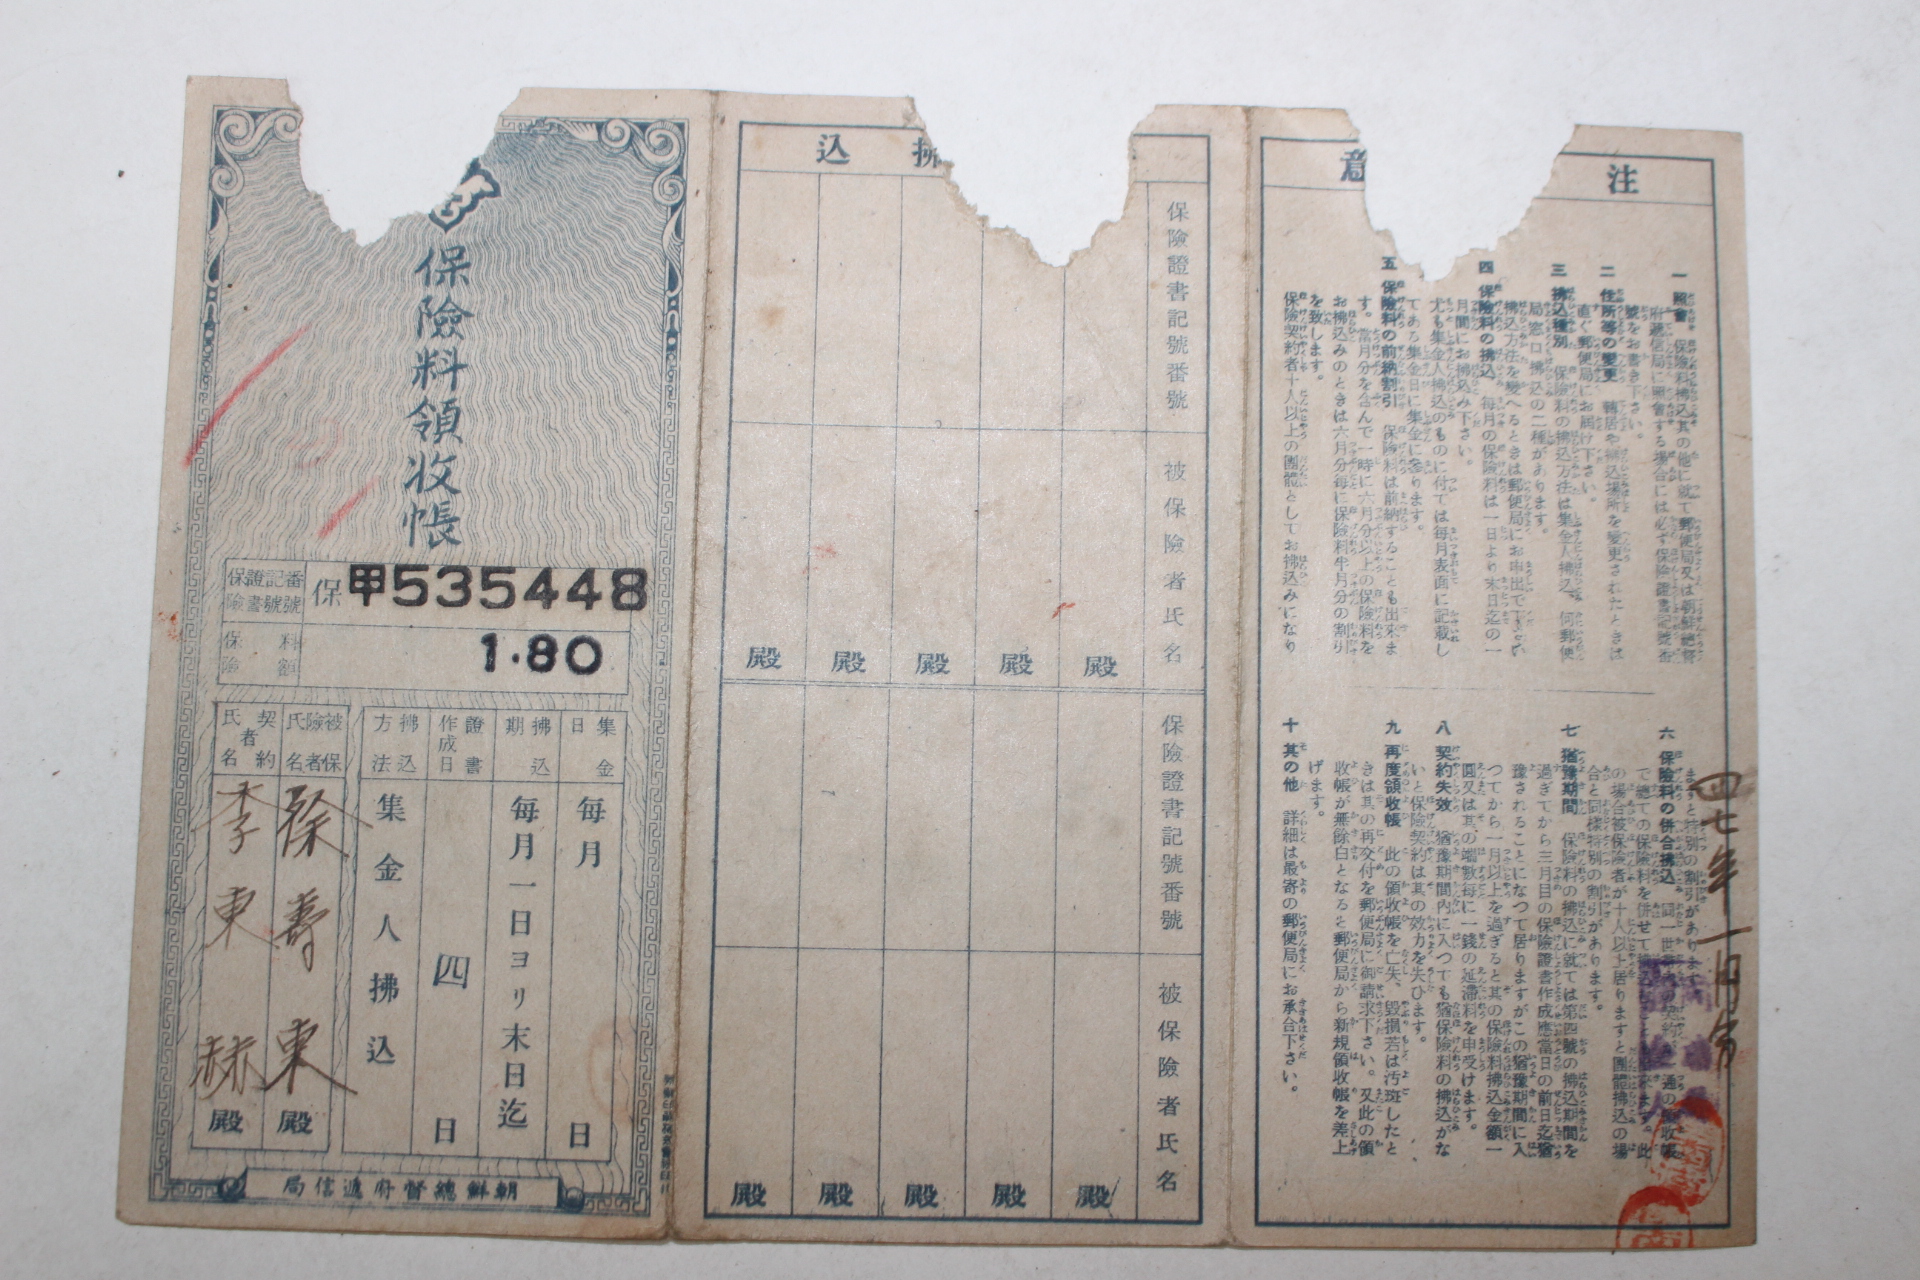 保險料領收帳
保險證書記號番號
保甲535448
保險料額
1.80
集金日
每月
日
拂込期
每月一日ヨリ末日迄
證書作成日
四
日
拂込方法
集金人拂込
被保險者氏名
徐壽東
殿
契約者氏名
李東赫
殿
朝鮮總督府遞信局
込
保險證書記號番號
被保險者氏名
殿
殿
殿
殿
殿
保險證書記號番號
被保險者氏名
殿
殿
殿
殿
殿
注意
一 照會 保險料拂込其の他に就て郵便局又は朝鮮總督
府遞信局に照會する場合には必ず保險證書記號番
號をお書き下さい。
二 住所等の變更 轉居や拂込場所を變更されたときは
直ぐ郵便局にお届け下さい。
三 拂込種別 保險料の拂込方法は集金人拂込、何郵便
局窓口拂込の二種があります。
拂込方法を變へるときは郵便局にお申出で下さい
四 保險料の拂込 每月の保險料は一日より末日迄の一
月間にお拂込み下さい。
尤も集金人拂込のものに付ては每月表面に記載し
てある集金日に集金に參ります。
五 保險料の前納割引 保險料は前納することも出來ま
す。當月分を含んで一時に六月分以上の保險料を
お拂込みのときは六月分每に保險料半月分の割引
を致します。
保險契約者十人以上の團體としてお拂込みになり
ますと特別の割引があります。
六 保險料の併合拂込 同一世帶
で總ての保險料を併せて
の場合被保險者が十人以上居りますと團體拂込の場
合と同樣特別の割引があります。
七 猶豫期間 保險料の拂込に就ては第四號の拂込期間を
過ぎてから三月目の保險證書作成應當日の前日迄猶
豫されることになつて居りますがこの猶豫期間に入
つてから一月以上を過ぎると其の保險料拂込金額一
圓又は其の端數每に一錢の延滯料を申受けます。
八 契約失效 猶豫期間内に入つても猶保險料の拂込がな
いと保險契約は其の效力を失ひます。
九 再度領收帳 此の領收帳を亡失、毀損若は汚斑したと
きは其の再交付を郵便局に御請求下さい。又此の領
收帳が無餘白となると郵便局から新規領收帳を差上
げます。
十 其の他 詳細は最寄の郵便局にお承合下さい。
四七年一月分